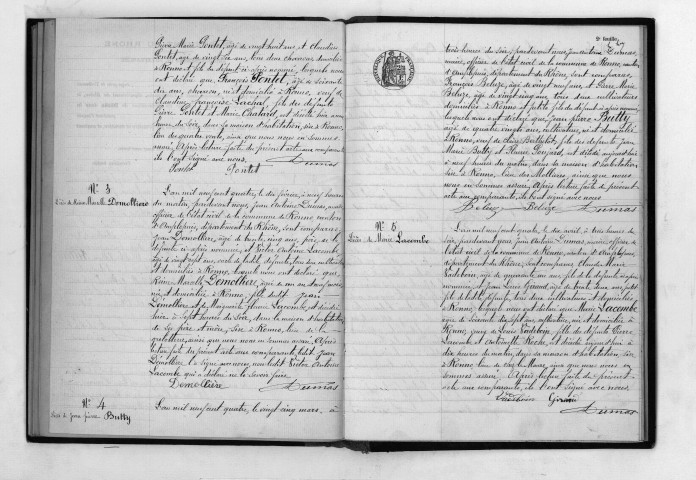 Pierre Marie Pontet, âgé de vingt huit ans, et Claudius
Pontet, âgé de vingt six ans, tous deux charrons, domiciliés
à Ronno et fils du défunt ci-après nommé, lesquels nous
ont déclaré que François Pontet, âgé de soixante
dix ans, charron, né et domicilié à Ronno, veuf de
Claudine Françoise, fils des défunts
Pierre Pontet et Marie Chatard, est décédé hier à onze
heures du soir, dans sa maison d'habitation, sise à Ronno,
lieu des quatre vents, ainsi que nous nous en sommes
assuré. Après lecture faite du présent acte aux comparants
ils l'ont signé avec nous.
Pontet Pontet Dumas
N° 3
Décès de Reine Marcelle Démollière
L'an mil neuf cent quatre, le dix février, à neuf heures
du matin, pardevant nous, Jean Antoine Dumas, maire,
officier de l'état civil de la commune de Ronno, canton
d'Amplepuis, département du Rhône, sont comparus
Jean Démollière, âgé de trente cinq ans, père de la
défunte ci-après nommée, et Victor Antoine Lacombe,
âgé de vingt sept ans, oncle de ladite défunte, tous deux cultivateurs
et domiciliés à Ronno, lesquels nous ont déclaré que
Reine Marcelle Démollière, âgée de un an
née et domiciliée à Ronno, fille dudit Jean
Démollière et de Marguerite Lacombe, est décédée
hier à sept heures du soir, dans la maison d'habitation
de ses père et mère, sise à Ronno, lieu de la
ainsi que nous nous en sommes assuré. Après
lecture faite du présent acte aux comparants, ledit Jean
Démollière l'a signé avec nous, non ledit Victor Antoine
Lacombe qui a déclaré ne le savoir faire.
Démollière Dumas
N° 4
Décès de Jean Pierre Butty
L'an mil neuf cent quatre, le vingt cinq mars, à
2e feuillet
trois heures du soir, pardevant nous, Jean Antoine Dumas,
maire, officier de l'état civil de la commune de Ronno, canton
d'Amplepuis, département du Rhône, sont comparus
François Beluze, âgé de vingt neuf ans, et Pierre Marie
Beluze, âgé de vingt cinq ans, tous deux cultivateurs
domiciliés à Ronno et petits fils du défunt ci-après nommé,
lesquels nous ont déclaré que Jean Pierre Butty
âgé de quatre vingts ans, cultivateur, né et domicilié
à Ronno, veuf de Claudine, fils des défunts Jean
Marie Butty et Pierrette, est décédé aujourd'hui
à neuf heures du matin, dans sa maison d'habitation
sise à Ronno, lieu des Mollières, ainsi que nous
nous en sommes assuré. Après lecture faite du présent
acte aux comparants, ils l'ont signé avec nous
Beluze Beluze Dumas
N° 5
Décès de Marie Lacombe
L'an mil neuf cent quatre, le dix avril, à trois heures du
soir, pardevant nous, Jean Antoine Dumas, maire, officier de
l'état civil de la commune de Ronno, canton d'Amplepuis,
département du Rhône, sont comparus Claude Marie
âgé de quarante un ans, fils de la défunte ci-après
nommée, et Jean Louis Giraud, âgé de trente deux ans, petit
fils de ladite défunte, tous deux cultivateurs et domiciliés
à Ronno, lesquels nous ont déclaré que Marie Lacombe
âgée de soixante dix sept ans, cultivatrice, née et domiciliée à
Ronno, veuve de Louis, fille des défunts Pierre
Lacombe et Antoinette Roche, est décédée aujourd'hui à
dix heures du matin, dans sa maison d'habitation, sise
à Ronno, lieu de, ainsi que nous nous en
sommes assuré. Après lecture faite du présent
acte aux comparants, ils l'ont signé avec nous.
Giraud
Dumas